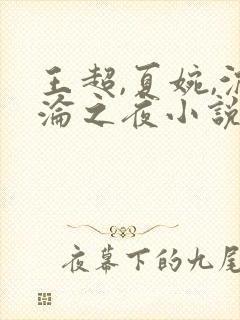 王超,夏婉,
淪之夜小說
夜幕下的九尾